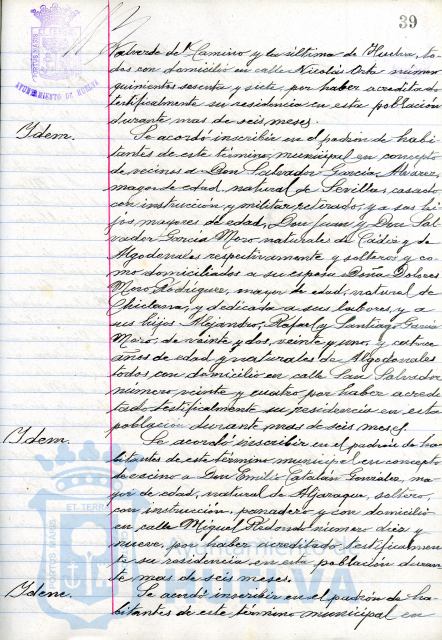 39
PORTUS MARIS
AYUNTAMIENTO DE HUELVA
Valverde del Camino y la última de Huelva, to-
dos con domicilio en calle Nicolás Orta número
quinientos sesenta y siete, por haber acreditado
testificalmente su residencia en esta población
durante mas de seis meses.
Idem.
Se acordó inscribir en el padrón de habi-
tantes de este término municipal en concepto
de vecinos a Don Salvador García Álvarez,
mayor de edad, natural de Sevilla, casado
con instrucción y militar retirado, y a sus hi-
jos mayores de edad, Don Juan y Don Sal-
vador García Moro, naturales de Cádiz y de
Algodonales respectivamente y solteros y co-
mo domiciliados a su esposa Doña Dolores
Moro Rodríguez, mayor de edad, natural de
Chiclana, y dedicada a sus labores, y a
sus hijos Alejandro, Rafael y Santiago García
Moro, de veinte y dos, veinte y uno, y catorce
años de edad y naturales de Algodonales
todos con domicilio en calle San Salvador
número veinte y cuatro por haber acredi-
tado testificalmente su residencia en esta
población durante mas de seis meses.
Idem.
Se acordó inscribir en el padrón de ha-
bitantes de este término municipal en concepto
de vecino a Don Emilio Catalán González, ma-
yor de edad, natural de Aljaraque, soltero,
con instrucción, panadero y con domicilio
en calle Miguel Redondo número diez y
nueve, por haber acreditado testificalmen-
te su residencia en esta población duran-
te mas de seis meses.
Idem.
Se acordó inscribir en el padrón de ha-
bitantes de este término municipal en
ET TERR
PORTUS MARIS
Ayuntamiento de
HUELVA